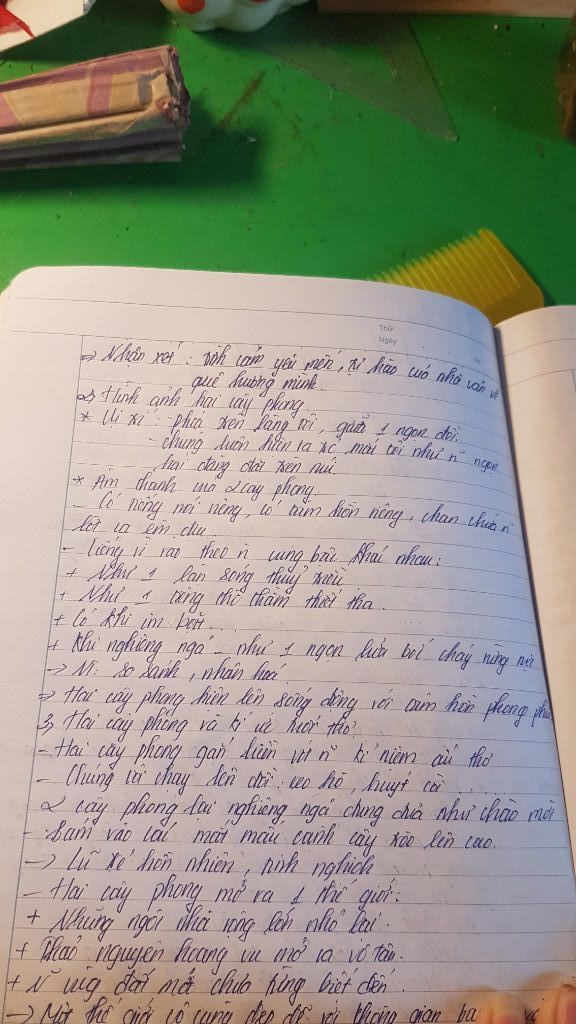 Thứ
Ngày
=> Nhận xét: tình cảm yêu mến, tự hào của nhà văn về
quê hương mình.
2) Hình ảnh hai cây phong
* Vị trí: phía trên làng tôi, giữa 1 ngọn đồi.
- chúng luôn hiện ra trc mắt tôi như n~ ngọn
hải đăng đặt trên núi
* Âm thanh của 2 cây phong
- Có tiếng nói riêng, có tâm hồn riêng, chan chứa n~
lời ca êm dịu
- Tiếng rì rào theo n~ cung bậc khác nhau:
+ Như 1 làn sóng thuỷ triều
+ Như 1 tiếng thì thầm thiết tha.
+ Có khi im bặt...
+ Khi nghiêng ngả... như 1 ngọn lửa bốc cháy rừng rực
-> NT: so sánh, nhân hoá
=> Hai cây phong hiện lên sống động với tâm hồn phong phú
3) Hai cây phong và kí ức tuổi thơ
- Hai cây phong gắn liền với n~ kỉ niệm ấu thơ
- Chúng tôi chạy lên đồi: reo hò, huýt còi .......
2 cây phong lại nghiêng ngả đung đưa như chào mời
- Bám vào các mắt mấu cành cây trèo lên cao.
-> Lũ trẻ hồn nhiên, tinh nghịch
- Hai cây phong mở ra 1 thế giới:
+ Những ngôi nhà rộng lớn nhỏ lại.
+ Thảo nguyên hoang vu mở ra vô tận.
+ N~ vùng đất mới chưa từng biết đến.
-> Một thế giới vô cùng đẹp đẽ với không gian bao